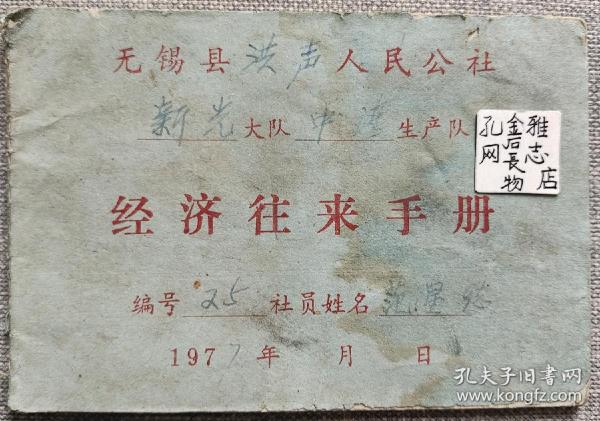 无锡县洪声人民公社
新光大队中 生产队
经济往来手册
编号25社员姓名范
1977年 月 日
孔网
金石長物
雅志店
孔夫子旧书网
www.kongfz.com